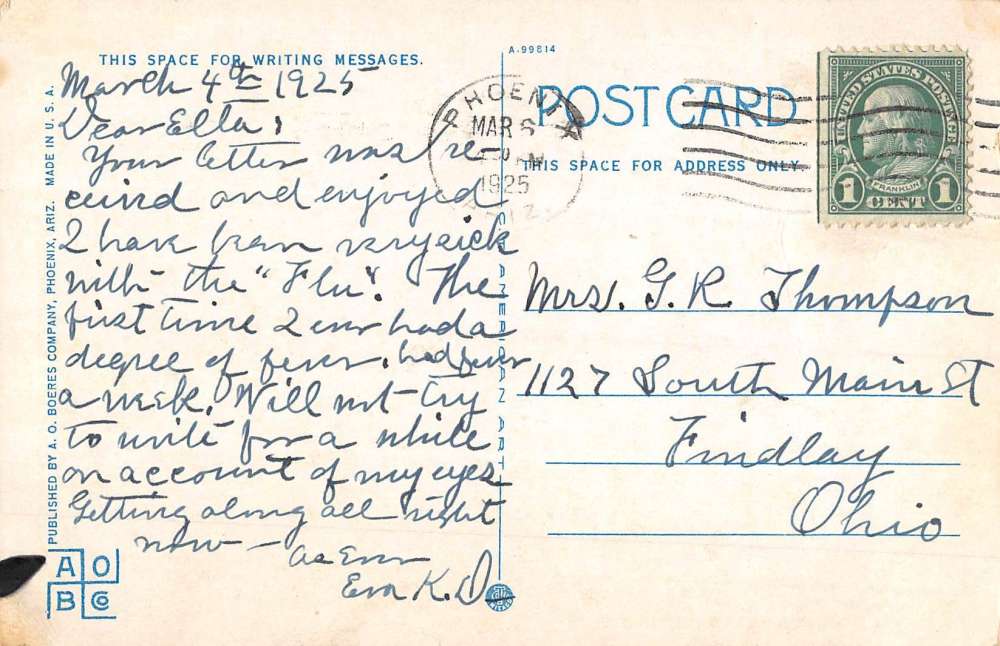 THIS SPACE FOR WRITING MESSAGES.
March 4th 1925
Dear Etta,
Your letter was re-
ceived and enjoyed
I have been very sick
with the "Flu". The
first time I ever had a
degree of fever. had fever
a week. Will not try
to write for a while
on account of my eyes
Getting along all right
now — as Ever
Eva K. D.
PUBLISHED BY A. O. BOERES COMPANY, PHOENIX, ARIZ. MADE IN U. S. A.
A O
B Co
C. T. AMERICAN ART
A-99814
POST CARD
THIS SPACE FOR ADDRESS ONLY
PHOENIX
MAR 6
30 PM
1925
ARIZ.
UNITED STATES POSTAGE
FRANKLIN
1 1
Mrs. G. R. Thompson
1127 South Main St
Findlay
Ohio